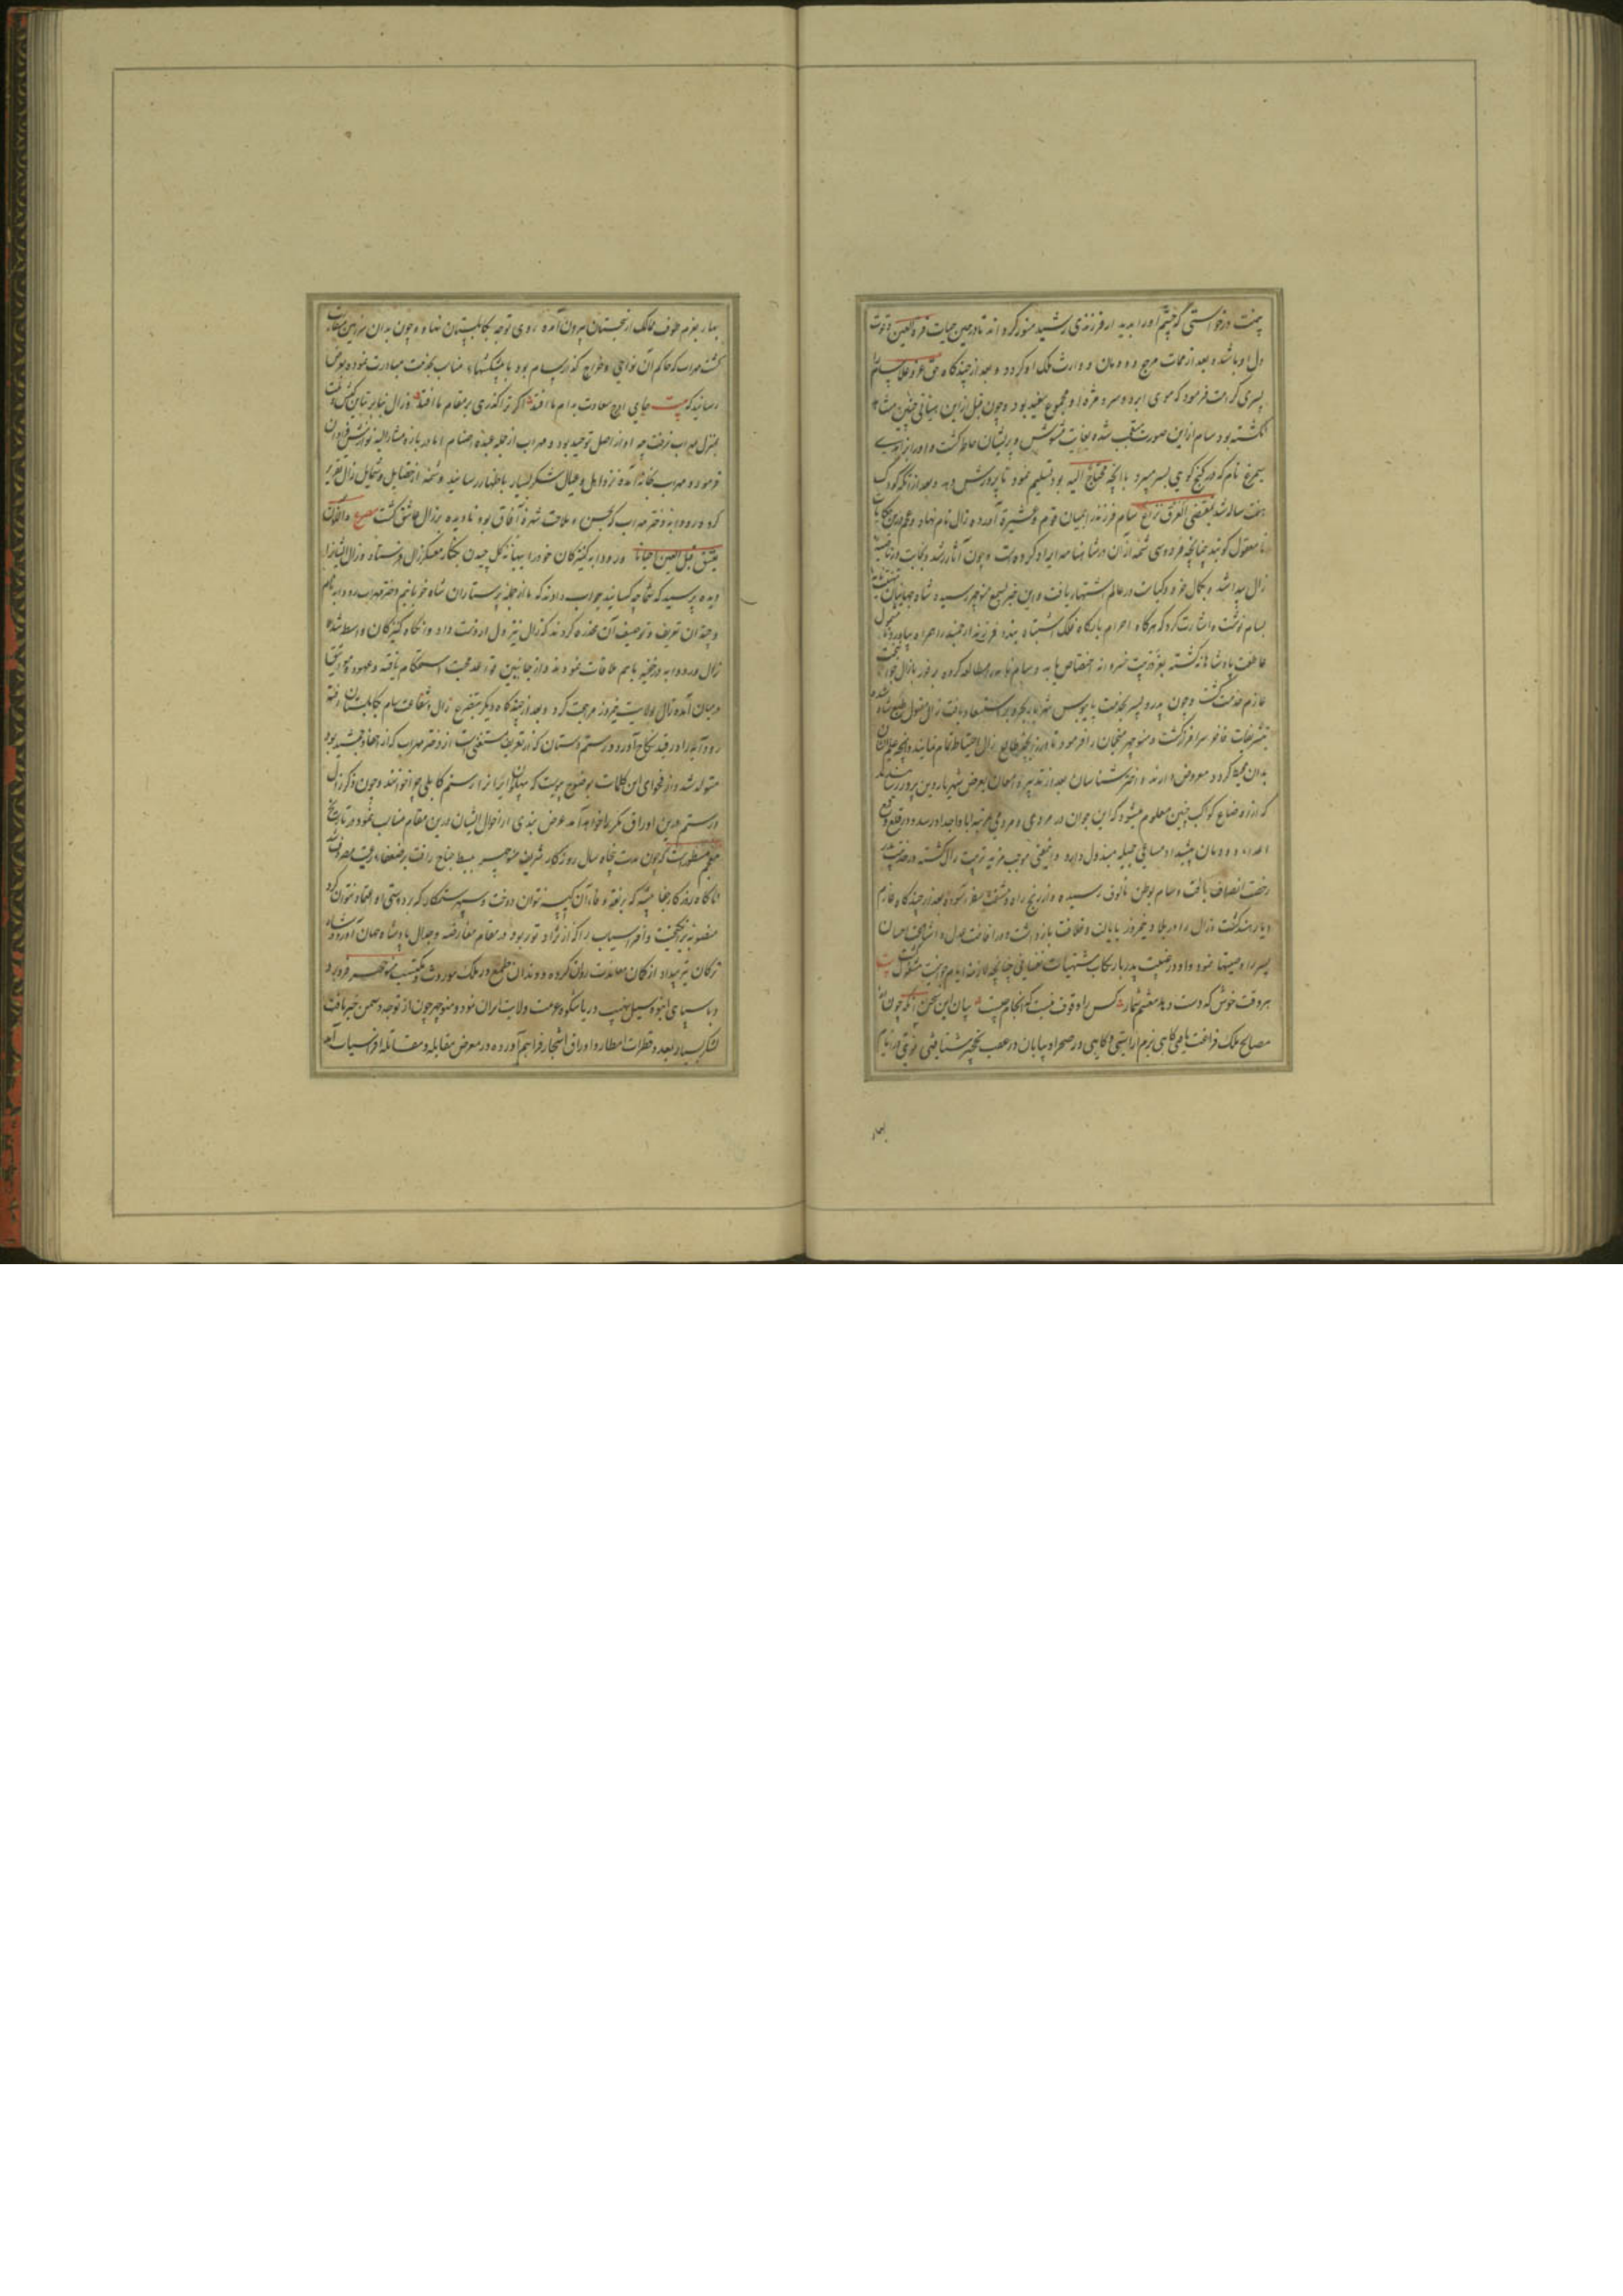 دل او باشد و بعد از ممات مرجع دودمان و وارث ملک او گردد و بعد از چندگاه حق عز و علا سام را
پسری کرامت فرمود که موی ابرو و سر و مژه او مجموع سفید بود و چون قبل از این انسانی چنین مشاهده
نگشته بود سام ازین صورت متعجب شده بغایت مشوش و پریشان خاطر گشت و او را بزاهدی
سیمرغ نام که در کنج کوهی بسر میبرد با آنچه محتاج الیه بود تسلیم نمود تا پرورش دهد و بعد از آنکه کودک
هفت ساله شد بمقتضی العرق نزاع سام فرزند را بمیان قوم و عشیره آورده زال نام نهاد
نامعقول گویند چنانچه فردوسی شمه از آن در شاهنامه ایراد کرده است و چون آثار رشد و نجابت در ناصیه
زال پیدا شد و بکمال خرد و کیاست در عالم اشتهار یافت و این خبر بسمع منوچهر رسید
بسام نوشت و اشارت کرد که هرگاه احرام بارگاه فلک اشتباه بندد فرزند ارجمند را همراه بیاورد
عاطفت پادشاهانه گشته بمزید تربیت خسروانه اختصاص یابد و سام نامه را مطالعه کرده
عازم خدمت گشت و چون پدر و پسر بخدمت پایبوس شهریار استسعاد یافت زال مقبول طبع شاه
بتشریفات فاخر سرافراز گشت و منوچهر منجمان را فرمود تا در زایجه طالع زال احتیاط تمام نمایند
بدان محیط گردد معروض دارند و اختر شناسان بعد از تدبیر و امعان بعرض شهریار دین پرور رسانیدند
که از اوضاع کواکب چنین معلوم میشود که این جوان در مردی و مردمی بمرتبه آبا و اجداد رسد
اعداء دودمان پیشداد مساعی جمیله مبذول دارد و این معنی موجب مزید تربیت زال گشته
رخصت انصراف یافت و سام بوطن مالوف رسیده و از رنج راه و مشقت سفر آسوده بعد از چندگاه عازم
دیار هند گشت و زال را در بلاد نیمروز بایالت و خلافت بازداشت
پسر را وصیتها نمود و او در غیبت پدر بارتکاب مشتهیات نفسانی چنانچه لازمه ایام جوانیست مشغول بیت
هر وقت خوش که دست دهد مغتنم شمار کس را وقوف نیست که انجام چیست بیان این سخن آنکه چون از
مصالح ملک فراغت یافتی گاهی بزم آراستی و گاهی در صحرا و بیابان در عقب نخچیر شتافتی
بهار
بهار بعزم طوف ممالک از سجستان بیرون آمده روی توجه بکابلستان نهاد و چون بدان سرزمین
گشت مهراب که حاکم آن نواحی و خراج گذار سام بود با پیشکشهای مناسب بخدمت مبادرت نموده بعرض
رسانید که بیت همای اوج سعادت بدام ما افتد اگر ترا گذری بر مقام ما افتد و زال بنابر
بمنزل مهراب نرفت چه او از اهل توحید بود و مهراب از جمله عبده اصنام اما درباره مشارالیه نوازش فراوان
فرمود و مهراب بخانه آمده نزد اهل و عیال شکر بسیار باظهار رسانید و شمه از فضایل و شمایل زال تقریر
کرد و رودابه دختر مهراب که بحسن و ملاحت شهره آفاق بود نادیده بر زال عاشق گشت مصرع و الاذن
تعشق قبل العین احیانا و رودابه کنیزکان خود را ببهانه گل چیدن بکنار معسکر زال فرستاد و زال ایشانرا
دیده پرسید که شما چه کسانید جواب دادند که ما از جمله پرستاران شاه خوبانیم دختر مهراب رودابه نام
و چندان تعریف و توصیف آن مخدره کردند که زال نیز دل از دست داد و آنگاه کنیزکان واسطه شده
زال و رودابه در خفیه باهم ملاقات نمودند و از جانبین قواعد محبت استحکام یافته و عهود و مواثیق
در میان آمده زال بولایت نیمروز مراجعت کرد و بعد از چندگاه دیگر بتضرع زال و شفاعت سام بکابلستان رفته
رودابه را در قید نکاح آورد و رستم دستان که از تعریف مستغنی است از دختر مهراب که از احفاد جمشید بود
متولد شد و از فحوای این کلمات بوضوح پیوست که پهلوانان ایران را رستم کابلی چرا خوانند و چون ذکر زال
و رستم درین اوراق مکرر خواهد آمد عرض نبذی از احوال ایشان درین مقام مناسب نمود در تاریخ
معجم مسطورست که چون مدت پنجاه سال روزگار شریف منوچهر ببسط جناح رافت بر ضعفاء رعیت مصروف شد
ناگاه روزگار جفا پیشه که بر عهد و وفاء آن کیسه نتوان دوخت و سپهر ستمکار که بر دوستی او اعتماد نتوان کرد
منصوبه برانگیخت و افراسیاب را که از نژاد تور بود در مقام معارضه و جدال پادشاه جهان آورد و شاه
ترکان تیر بیداد از کمان معاندت روان کرده و دندان طمع در ملک موروث و مکتسب منوچهر فرو برد
و با سپاهی انبوه سیل نهیب دریا شکوه عزیمت ولایات ایران نمود و منوچهر چون از توجه دشمن خبر یافت
لشکر بسیار بعدد قطرات امطار و اوراق اشجار فراهم آورده در معرض مقابله و مقاتله افراسیاب آمد